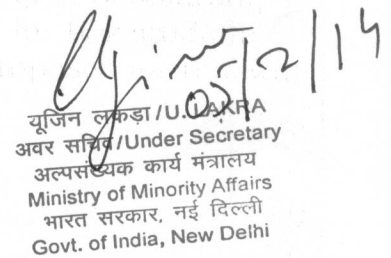 05/2/14
यूजिन लकड़ा/U. LAKRA
अवर सचिव/Under Secretary
अल्पसंख्यक कार्य मंत्रालय
Ministry of Minority Affairs
भारत सरकार, नई दिल्ली
Govt. of India, New Delhi